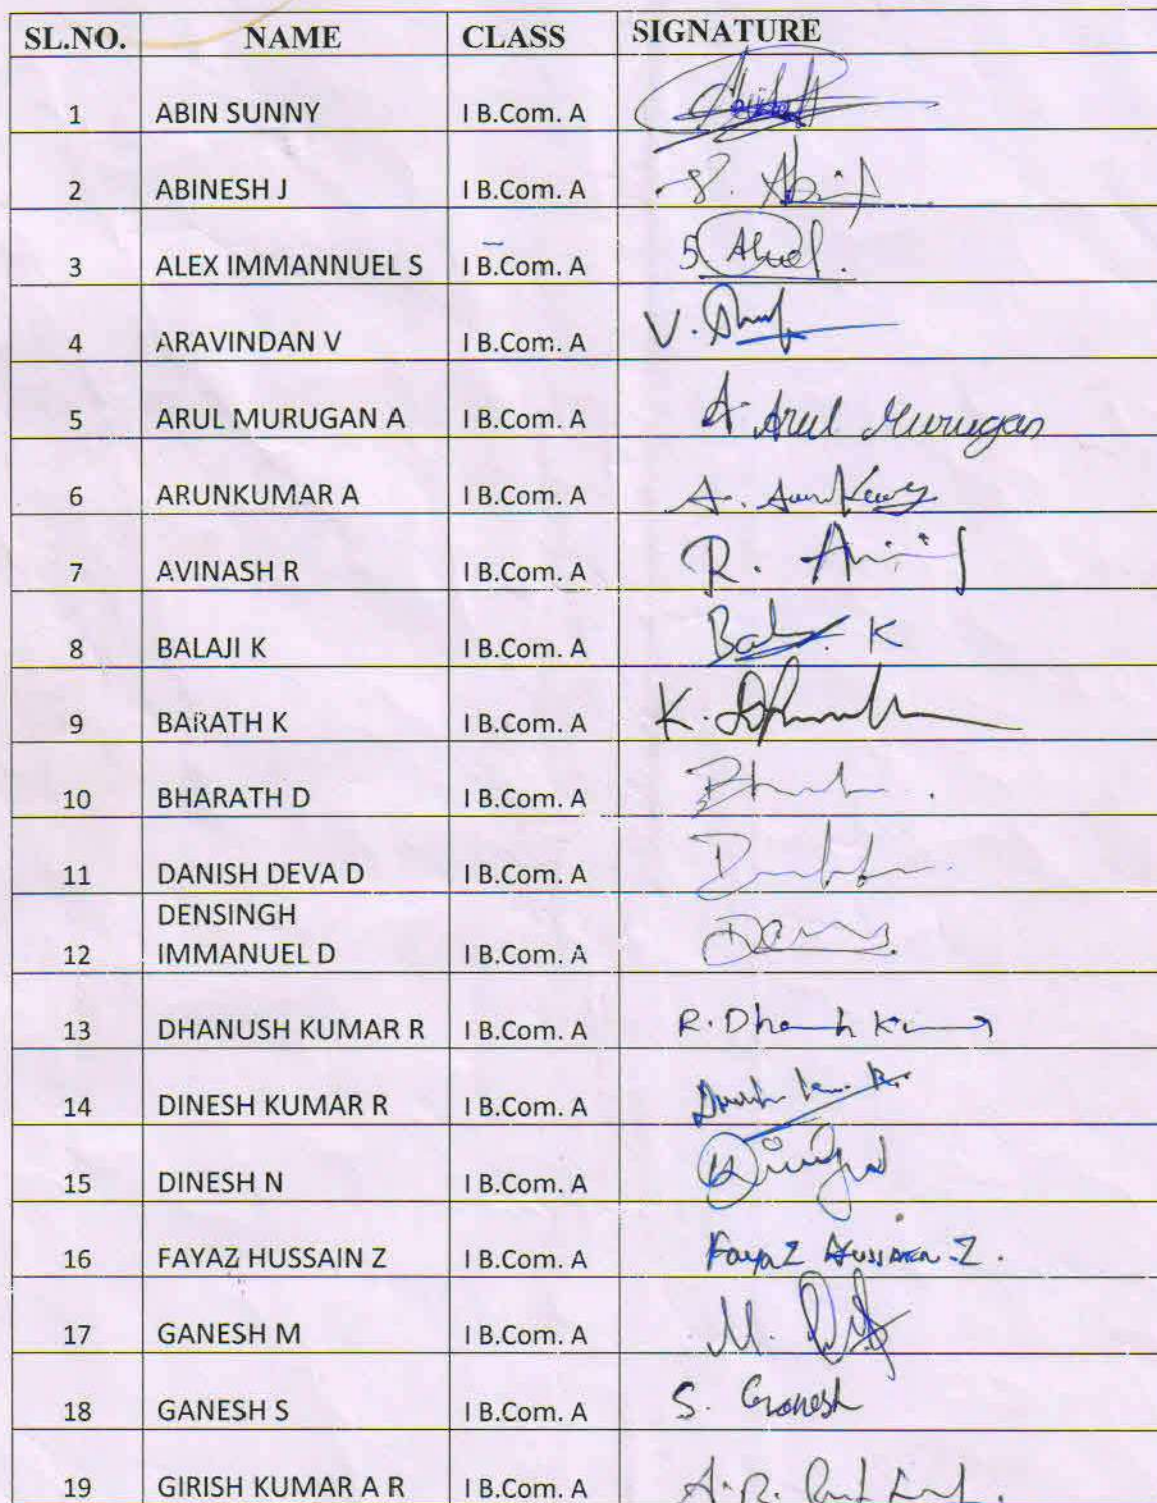 SL.NO. NAME CLASS SIGNATURE
1 ABIN SUNNY I B.Com. A
2 ABINESH J I B.Com. A
3 ALEX IMMANNUEL S I B.Com. A S
4 ARAVINDAN V I B.Com. A V.
5 ARUL MURUGAN A I B.Com. A A. Arul Murugan
6 ARUNKUMAR A I B.Com. A A.
7 AVINASH R I B.Com. A R.
8 BALAJI K I B.Com. A K
9 BARATH K I B.Com. A K.
10 BHARATH D I B.Com. A
11 DANISH DEVA D I B.Com. A
DENSINGH
12 IMMANUEL D I B.Com. A
13 DHANUSH KUMAR R I B.Com. A R.
14 DINESH KUMAR R I B.Com. A
15 DINESH N I B.Com. A
16 FAYAZ HUSSAIN Z I B.Com. A Fayaz Hussain. Z.
17 GANESH M I B.Com. A M.
18 GANESH S I B.Com. A S. Ganesh
19 GIRISH KUMAR A R I B.Com. A A.R.